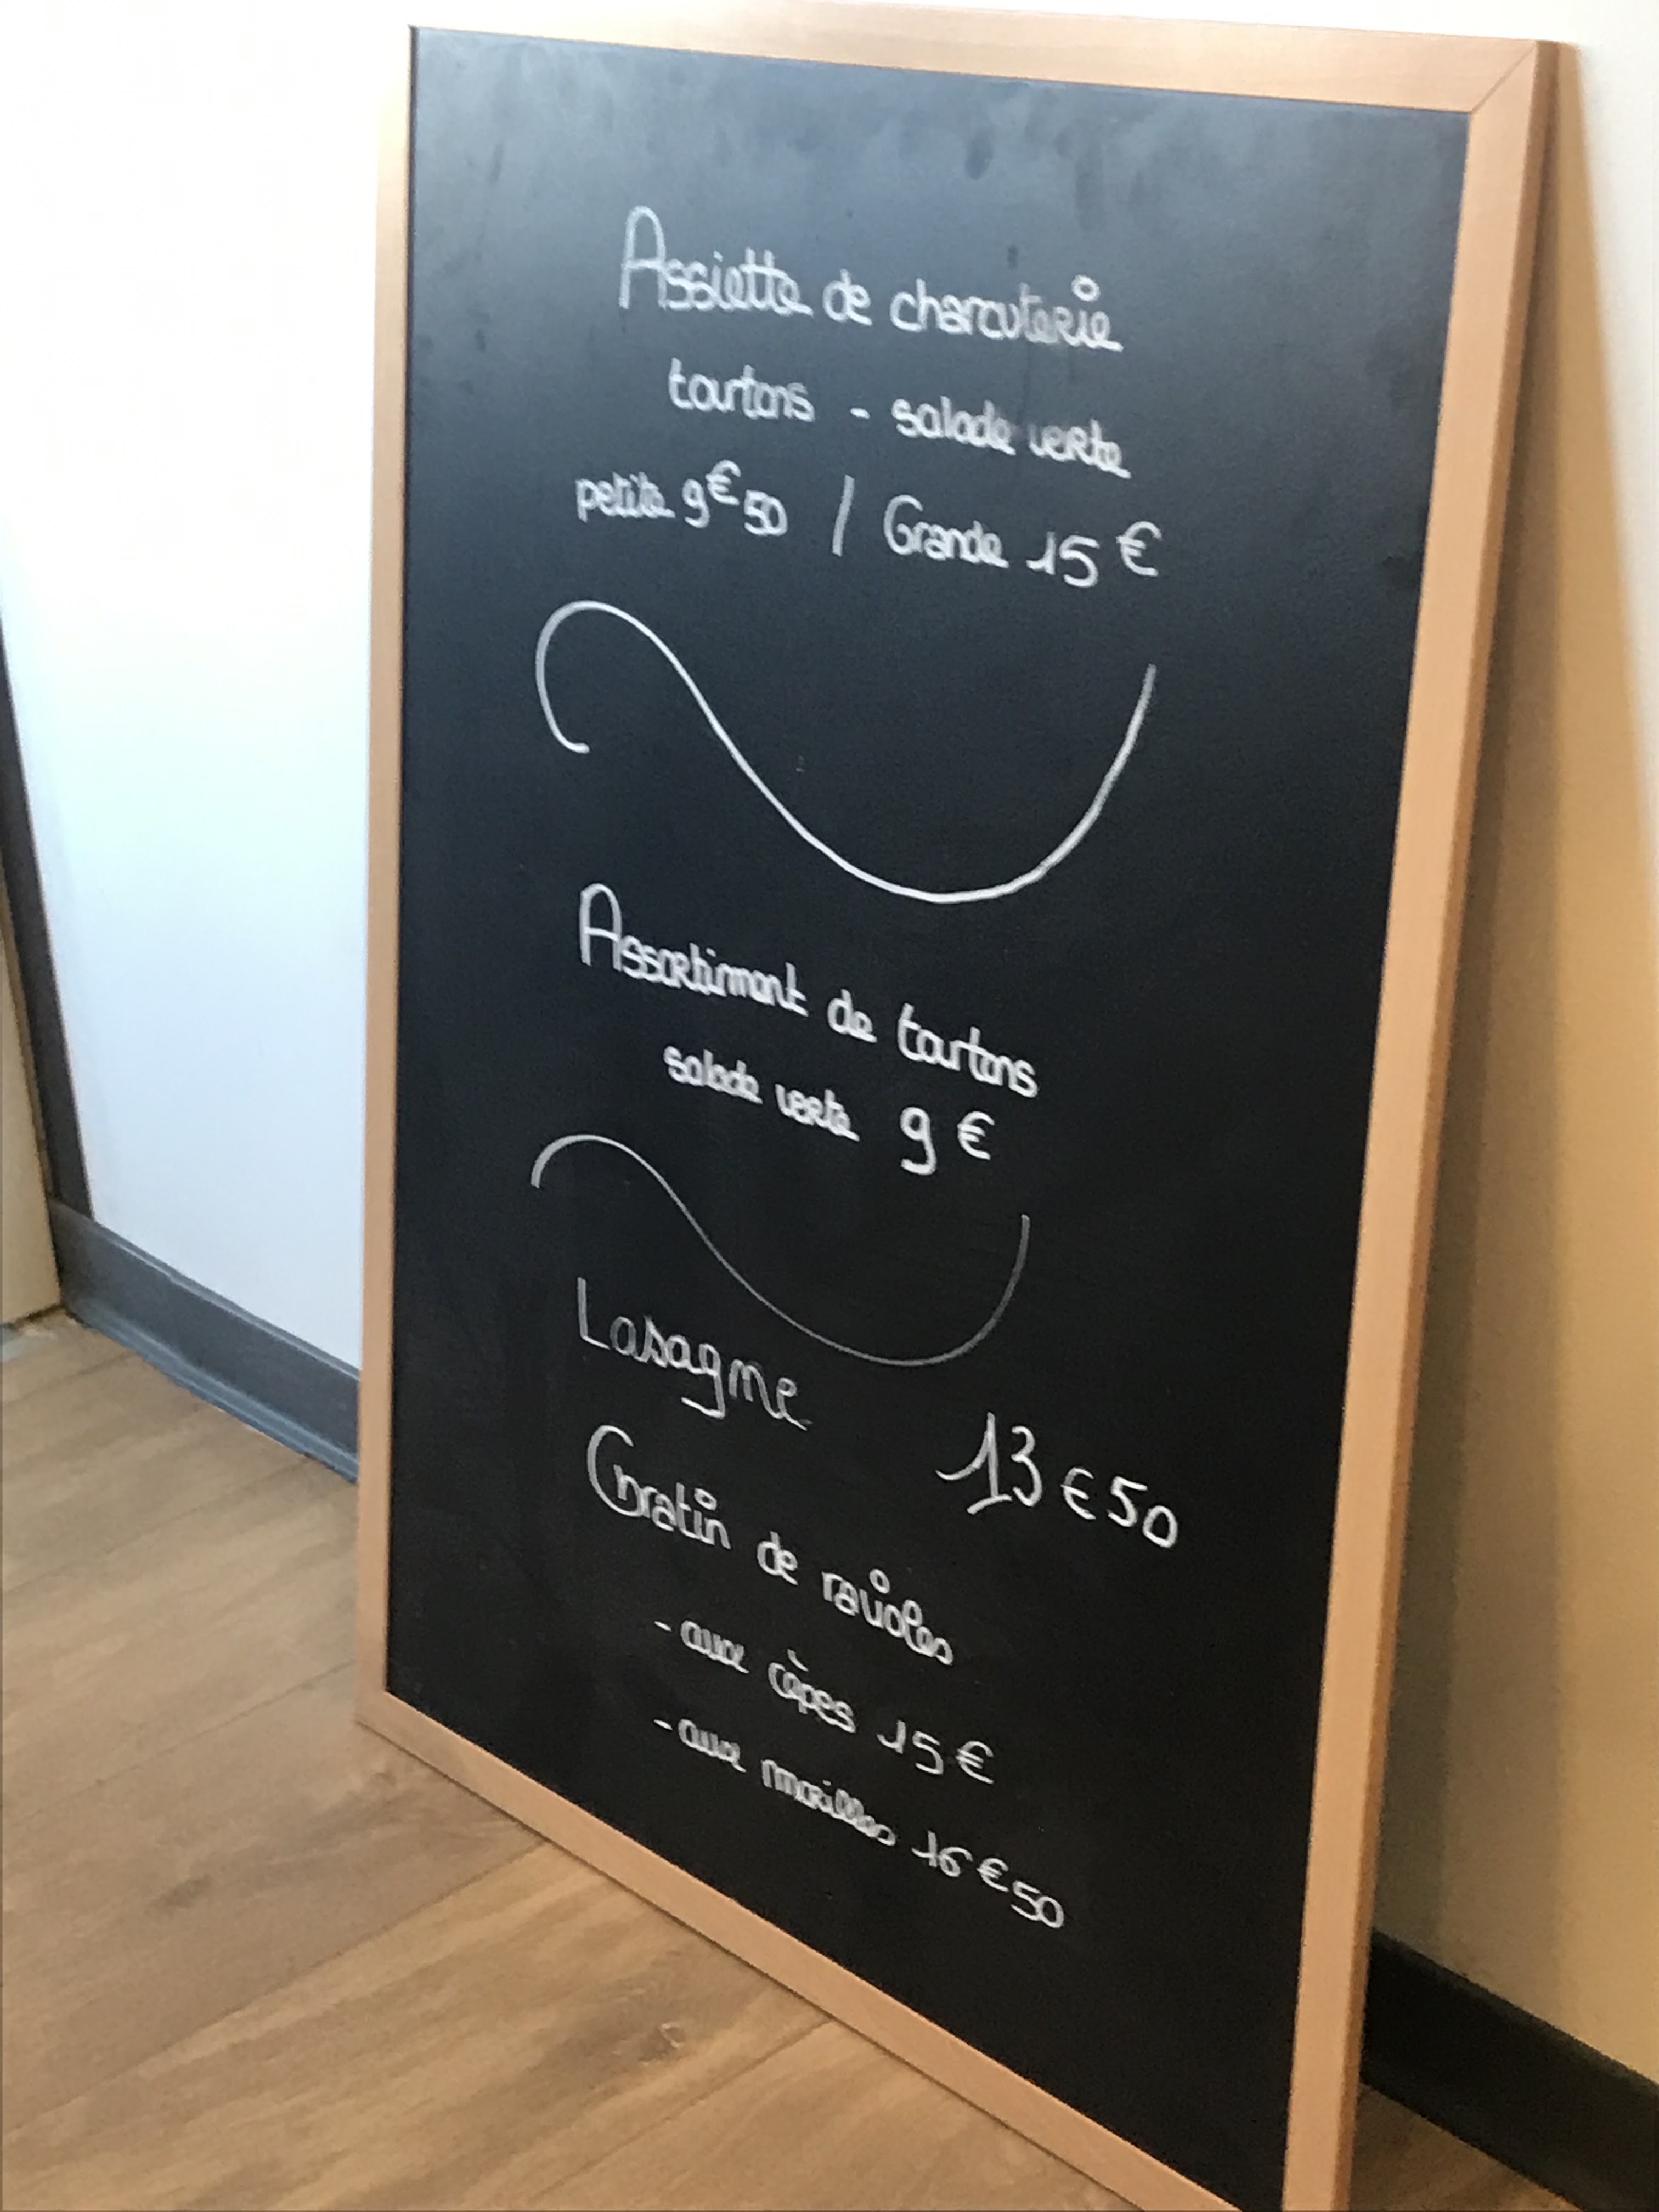 Assiette de charcuterie
tourtons - salade verte
petite 9€50 / Grande 15€
Assortiment de tourtons
salade verte 9€
Lasagne 13€50
Gratin de ravioles
- aux cèpes 15€
- aux morilles 16€50